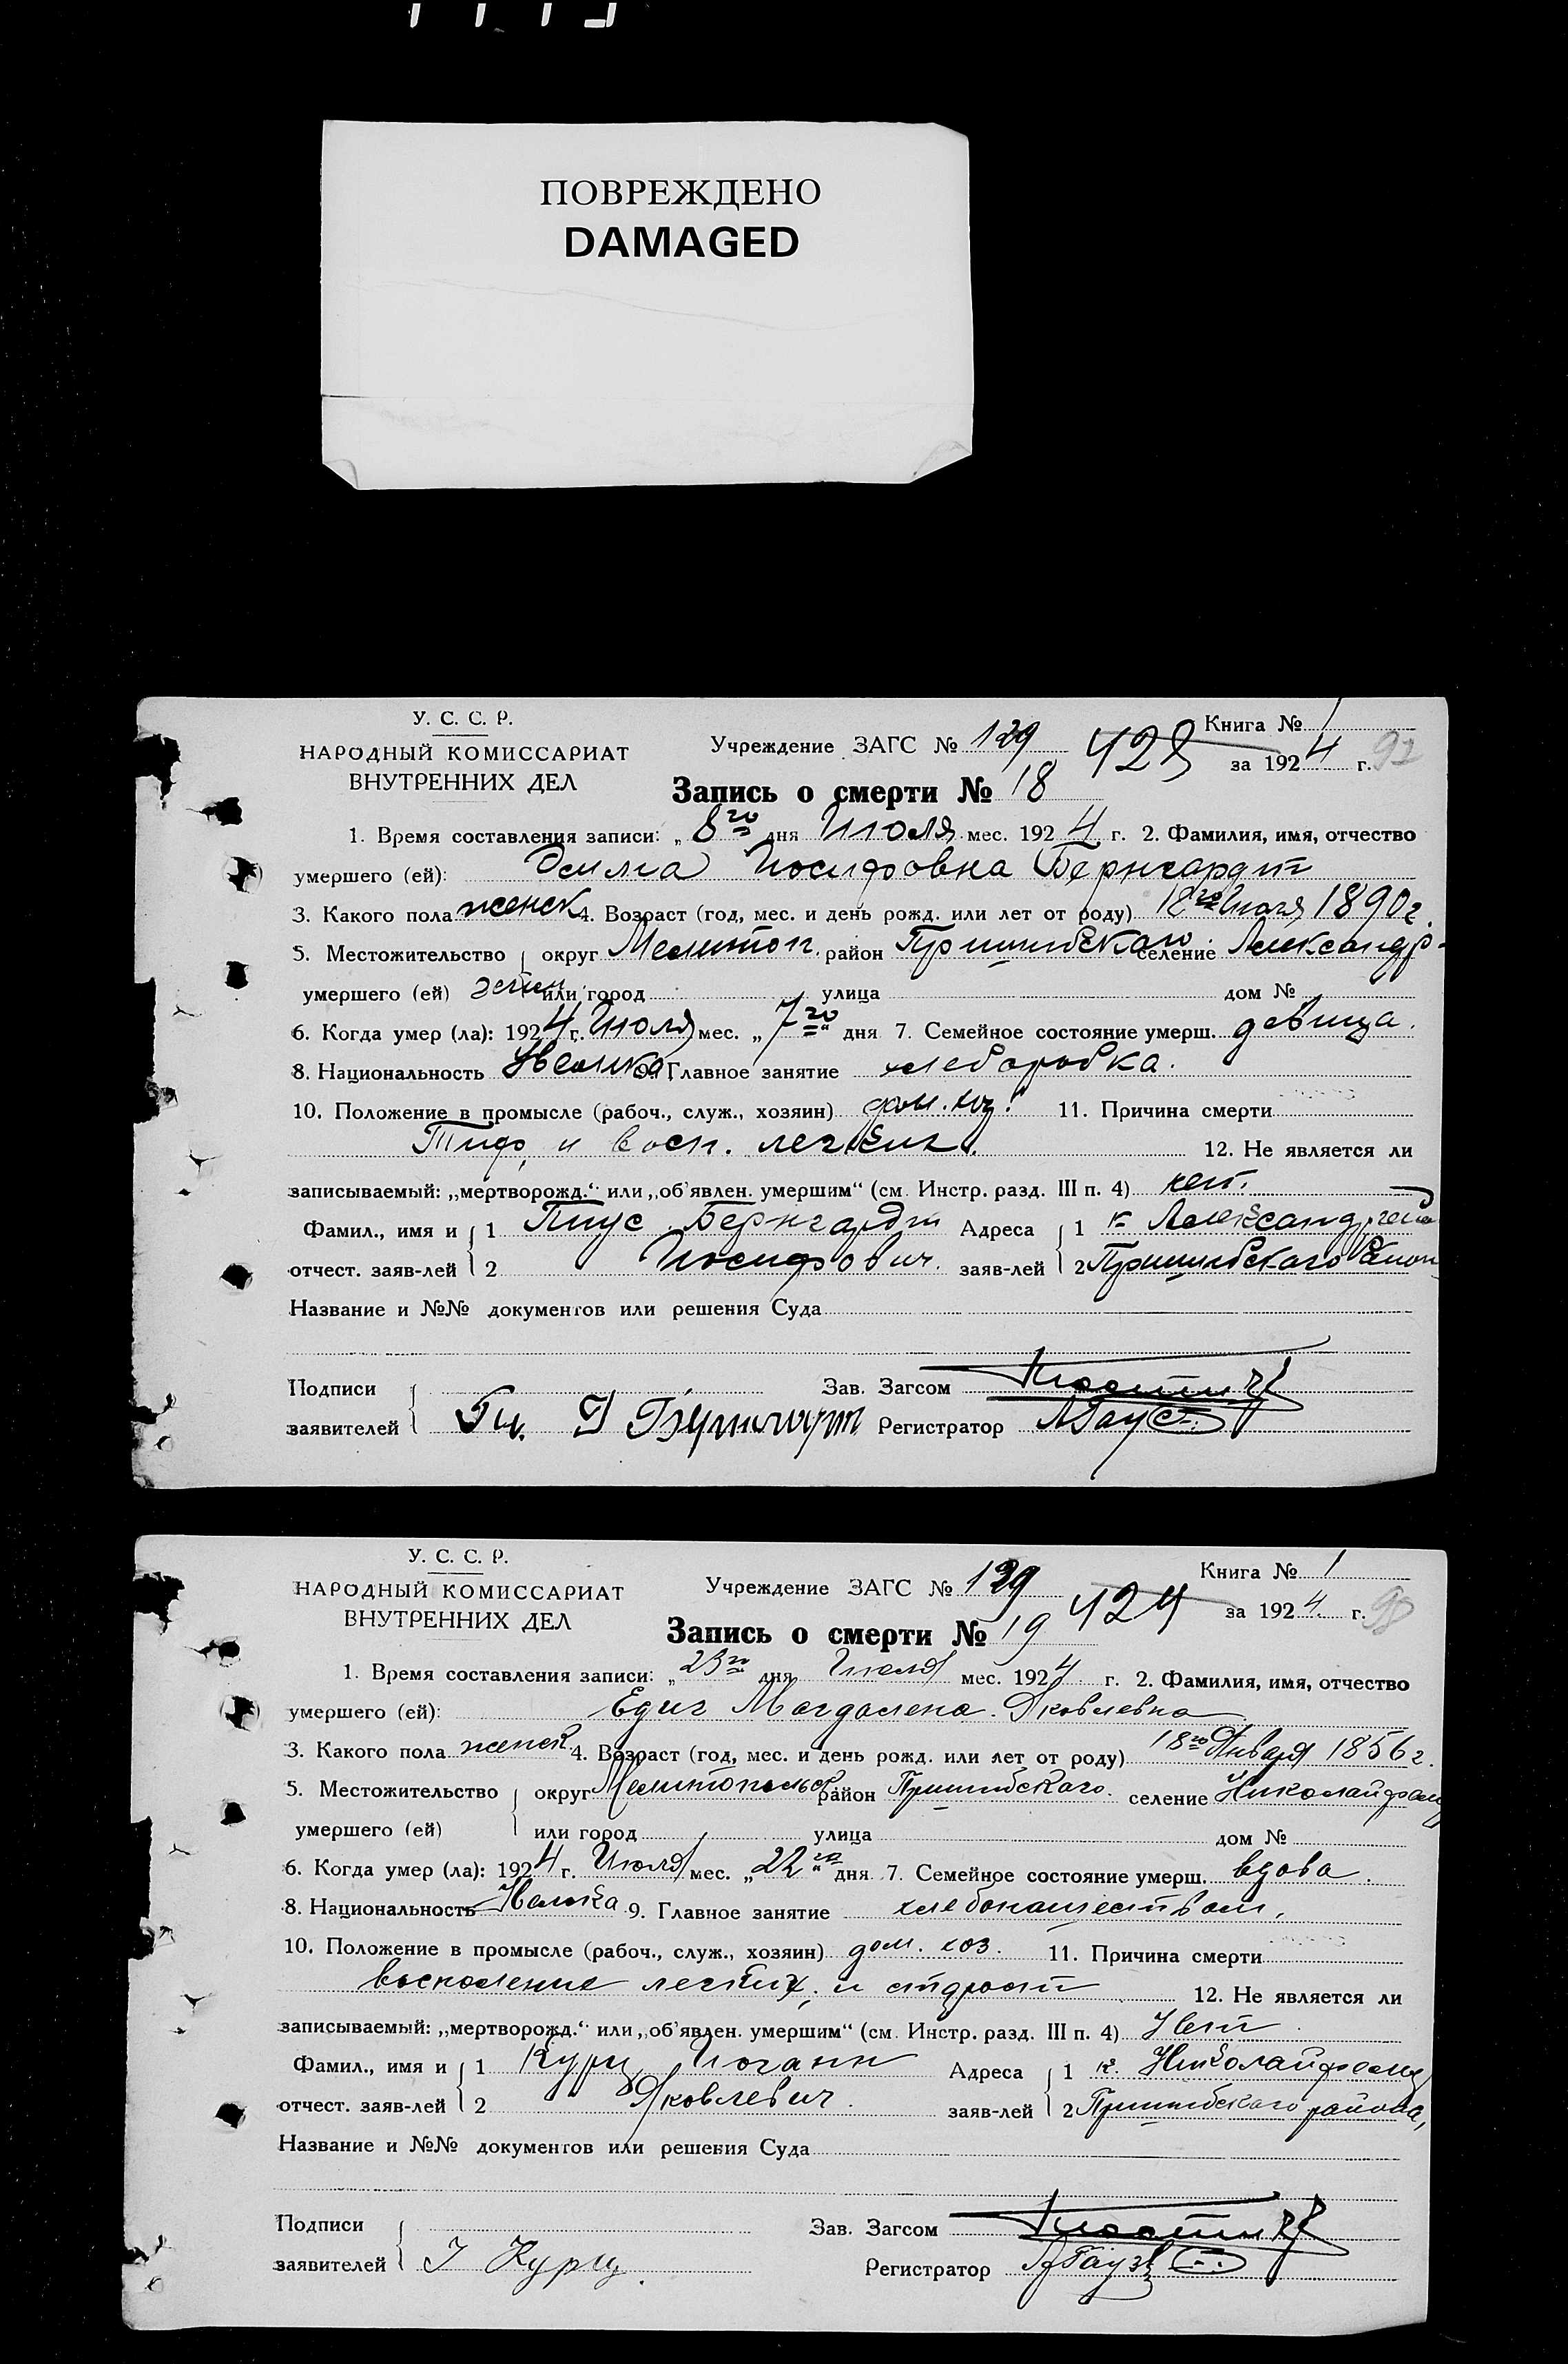 ПОВРЕЖДЕНО
DAMAGED
У. С. С. Р.
НАРОДНЫЙ КОМИССАРИАТ
ВНУТРЕННИХ ДЕЛ
Учреждение ЗАГС № 129
Книга № 1
за 1924 г. 92
Запись о смерти № 18
1. Время составления записи: „ 8го дня Июля мес. 1924 г. 2. Фамилия, имя, отчество
умершего (ей): Иосифовна Бернгардт
3. Какого пола женск 4. Возраст (год, мес. и день рожд. или лет от роду) 1890 г.
5. Местожительство округ Мелитоп. район Пришибского селение Александр-
умершего (ей) гейм или город улица дом №
6. Когда умер (ла): 1924 г. Июля мес. „ 7го “ дня 7. Семейное состояние умерш. девица.
8. Национальность Немка 9. Главное занятие хлеборобка.
10. Положение в промысле (рабоч., служ., хозяин) дом. хоз. 11. Причина смерти
Тиф и восп. легких. 12. Не является ли
записываемый: „мертворожд.“ или „об'явлен. умершим“ (см. Инстр. разд. III п. 4) нет.
Фамил., имя и 1 Пиус Бернгардт Адреса 1 к Александргейм
отчест. заяв-лей 2 Иосифович. заяв-лей 2 Пришибского
Название и №№ документов или решения Суда
Подписи Зав. Загсом
заявителей Регистратор
У. С. С. Р.
НАРОДНЫЙ КОМИССАРИАТ
ВНУТРЕННИХ ДЕЛ
Учреждение ЗАГС № 129
Книга № 1
424
за 1924 г.
Запись о смерти № 19
1. Время составления записи: „ 23го дня Июля мес. 1924 г. 2. Фамилия, имя, отчество
умершего (ей): Едиг Магдалена Яковлевна
3. Какого пола женск 4. Возраст (год, мес. и день рожд. или лет от роду) 18го Января 1856 г.
5. Местожительство округ Мелитопольск район Пришибского. селение Николайфельд
умершего (ей) или город улица дом №
6. Когда умер (ла): 1924 г. Июля мес. „ 22го “ дня 7. Семейное состояние умерш. вдова.
8. Национальность Немка 9. Главное занятие хлебопашеством.
10. Положение в промысле (рабоч., служ., хозяин) дом. хоз. 11. Причина смерти
воспаление легких и старости 12. Не является ли
записываемый: „мертворожд.“ или „об'явлен. умершим“ (см. Инстр. разд. III п. 4) Нет
Фамил., имя и 1 Курц Иоганн Адреса 1 к. Николайфельд
отчест. заяв-лей 2 Яковлевич. заяв-лей 2 Пришибского района,
Название и №№ документов или решения Суда
Подписи Зав. Загсом
заявителей І Курц. Регистратор